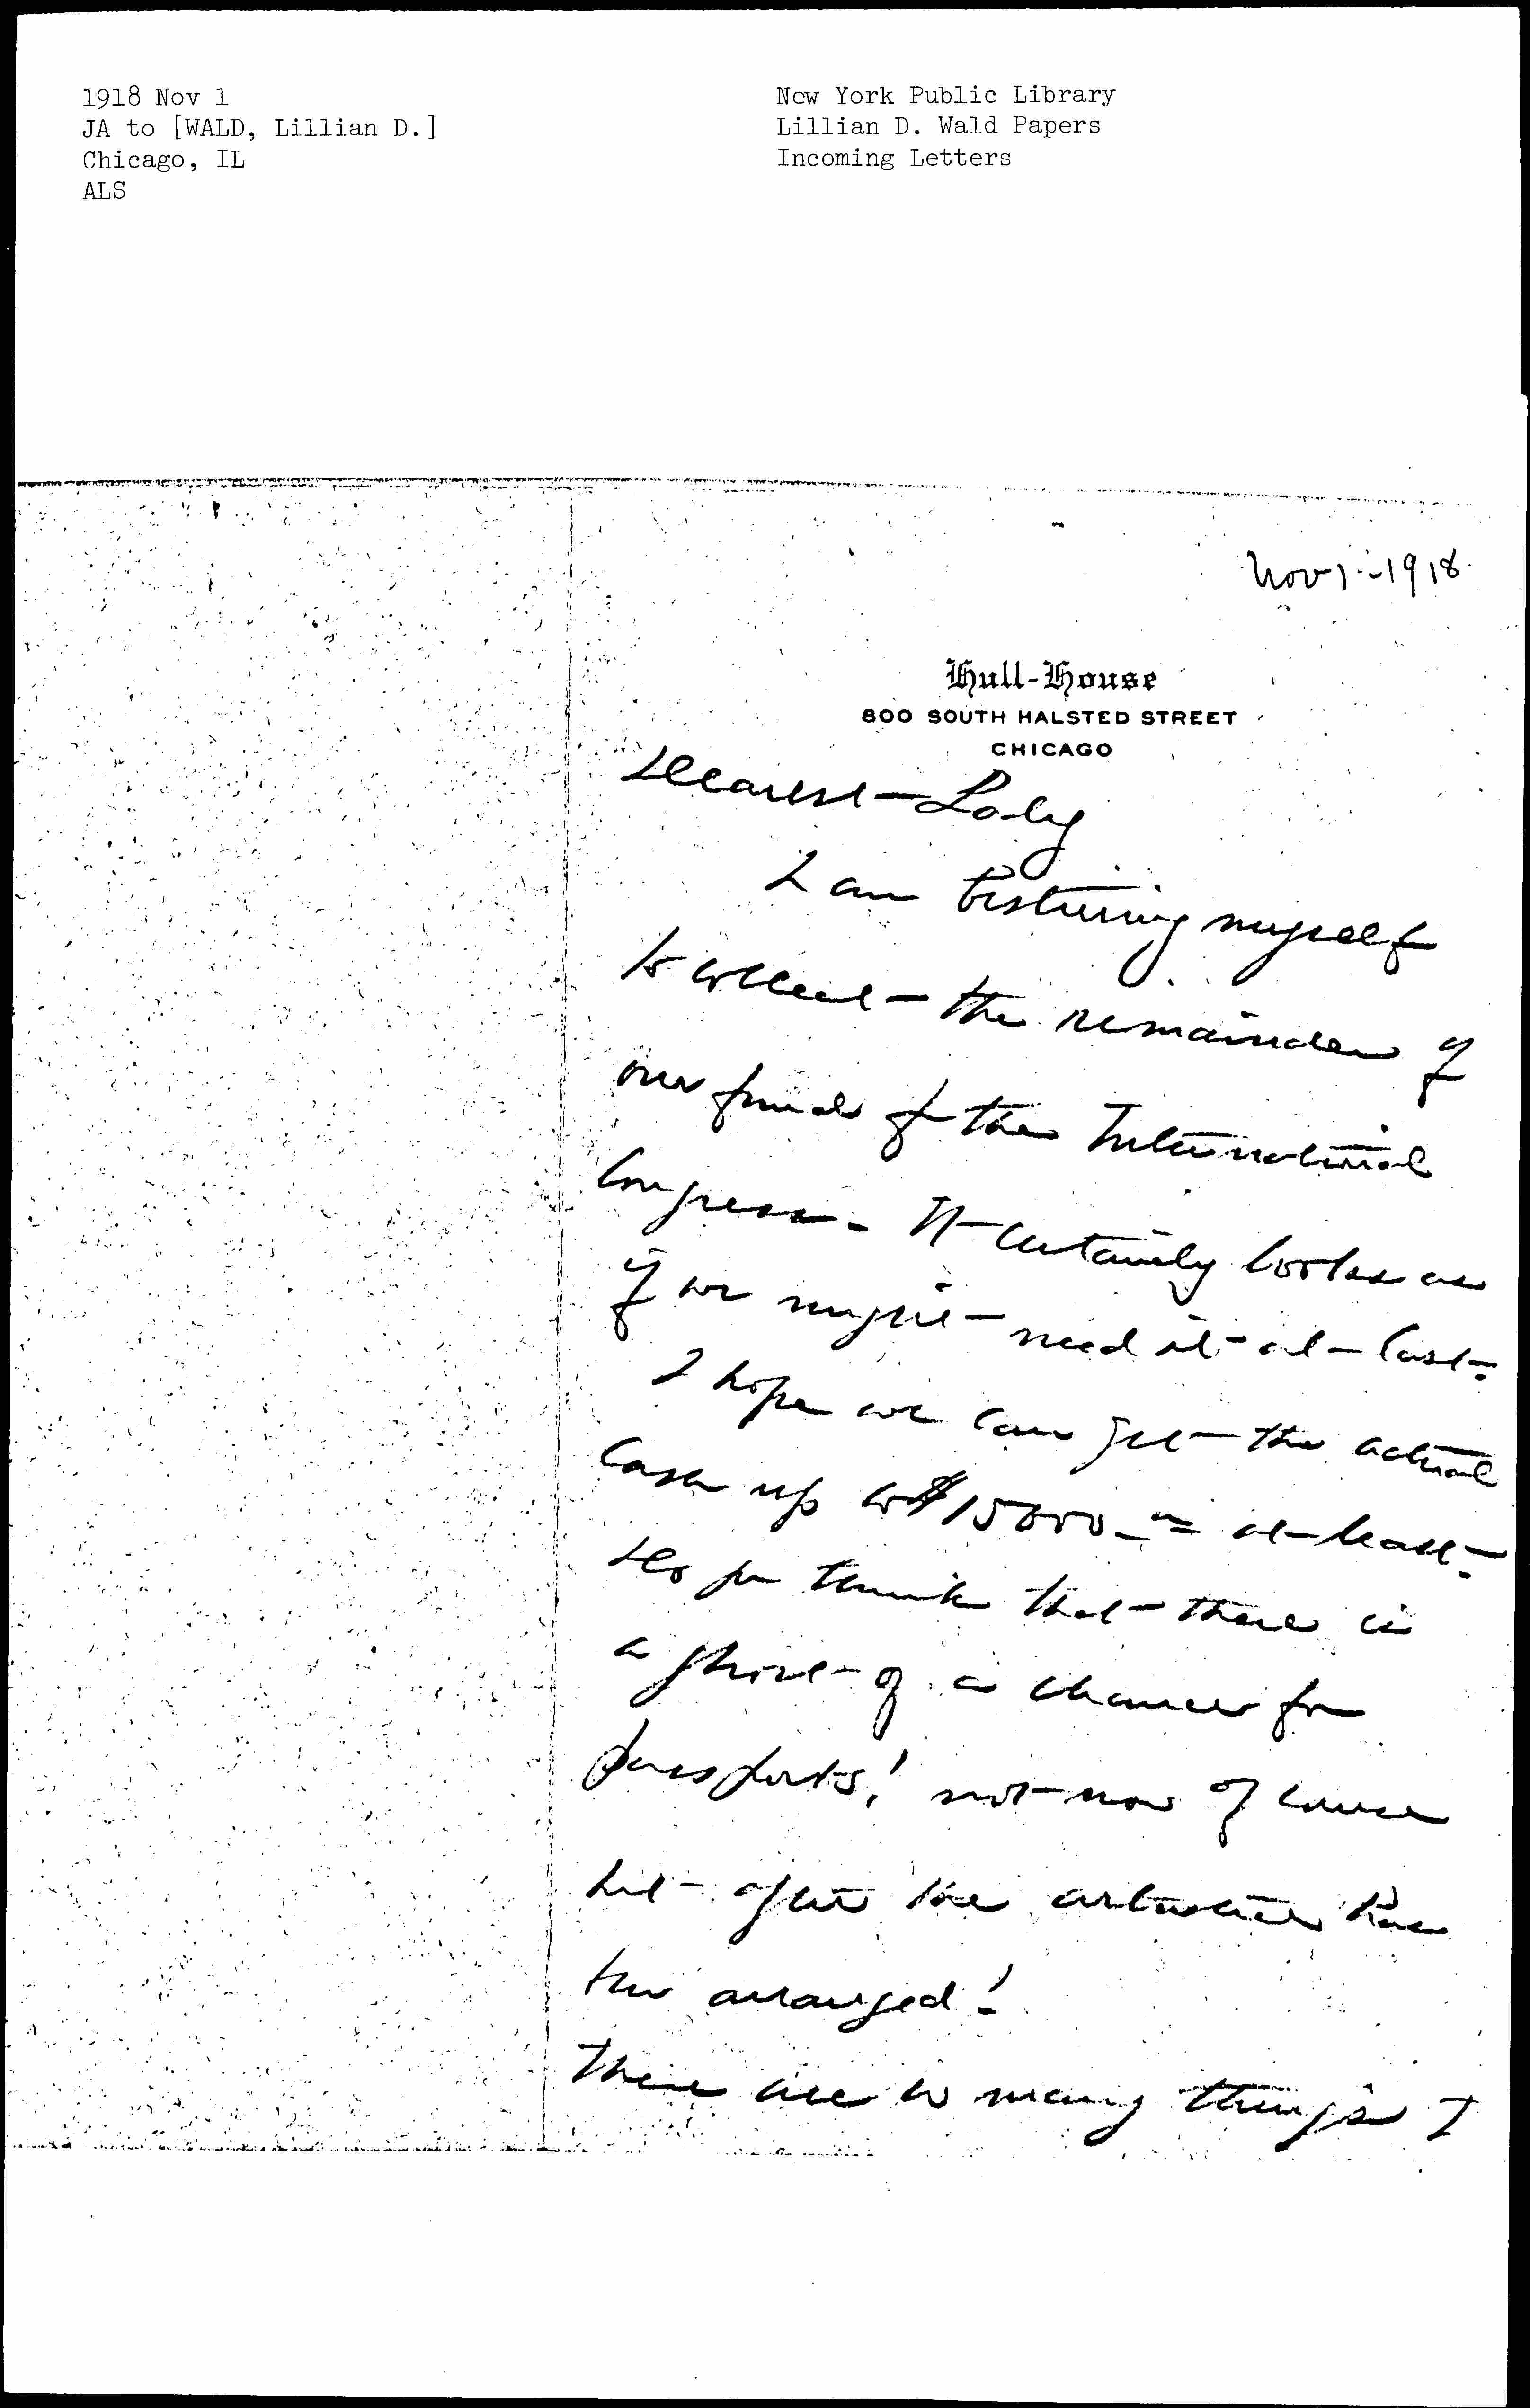 1918 Nov 1
JA to [WALD, Lillian D.]
Chicago, IL
ALS
New York Public Library
Lillian D. Wald Papers
Incoming Letters
Nov 1--1918.
Hull-House
800 SOUTH HALSTED STREET
CHICAGO
Dearest Lady
I am bestirring myself
to collect the remainder of
our funds for the International
Congress. It certainly looks as
if we might need it at last.
I hope we can get the actual
cash up to $15000.00 at least.
Do you think that there is
a ghost of a chance for
passports! not now of course
but after the armistice has
been arranged!
There are so many things I